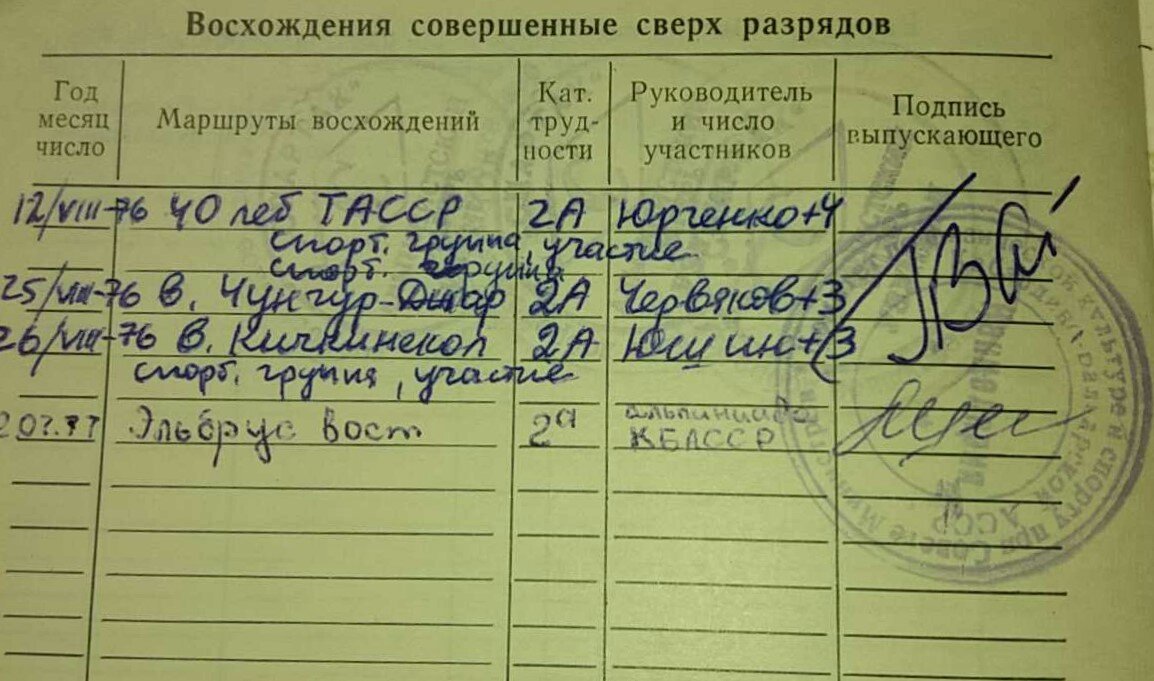 Восхождения совершенные сверх разрядов
Год месяц число
Маршруты восхождений
Кат. труд- ности
Руководитель и число участников
Подпись выпускающего
12/VIII-76 40 лет ТАССР 2А Юрченко+4
спорт. группа, участие
спорт. группа
25/VIII-76 В. Чунгур-Джар 2А Червяков+3
26/VIII-76 В. Кичкинекол 2А Юшин+3
спорт. группа, участие
Эльбрус Вост 2а альпиниада
КБАССР
культуре и спорту при Совете
АССР